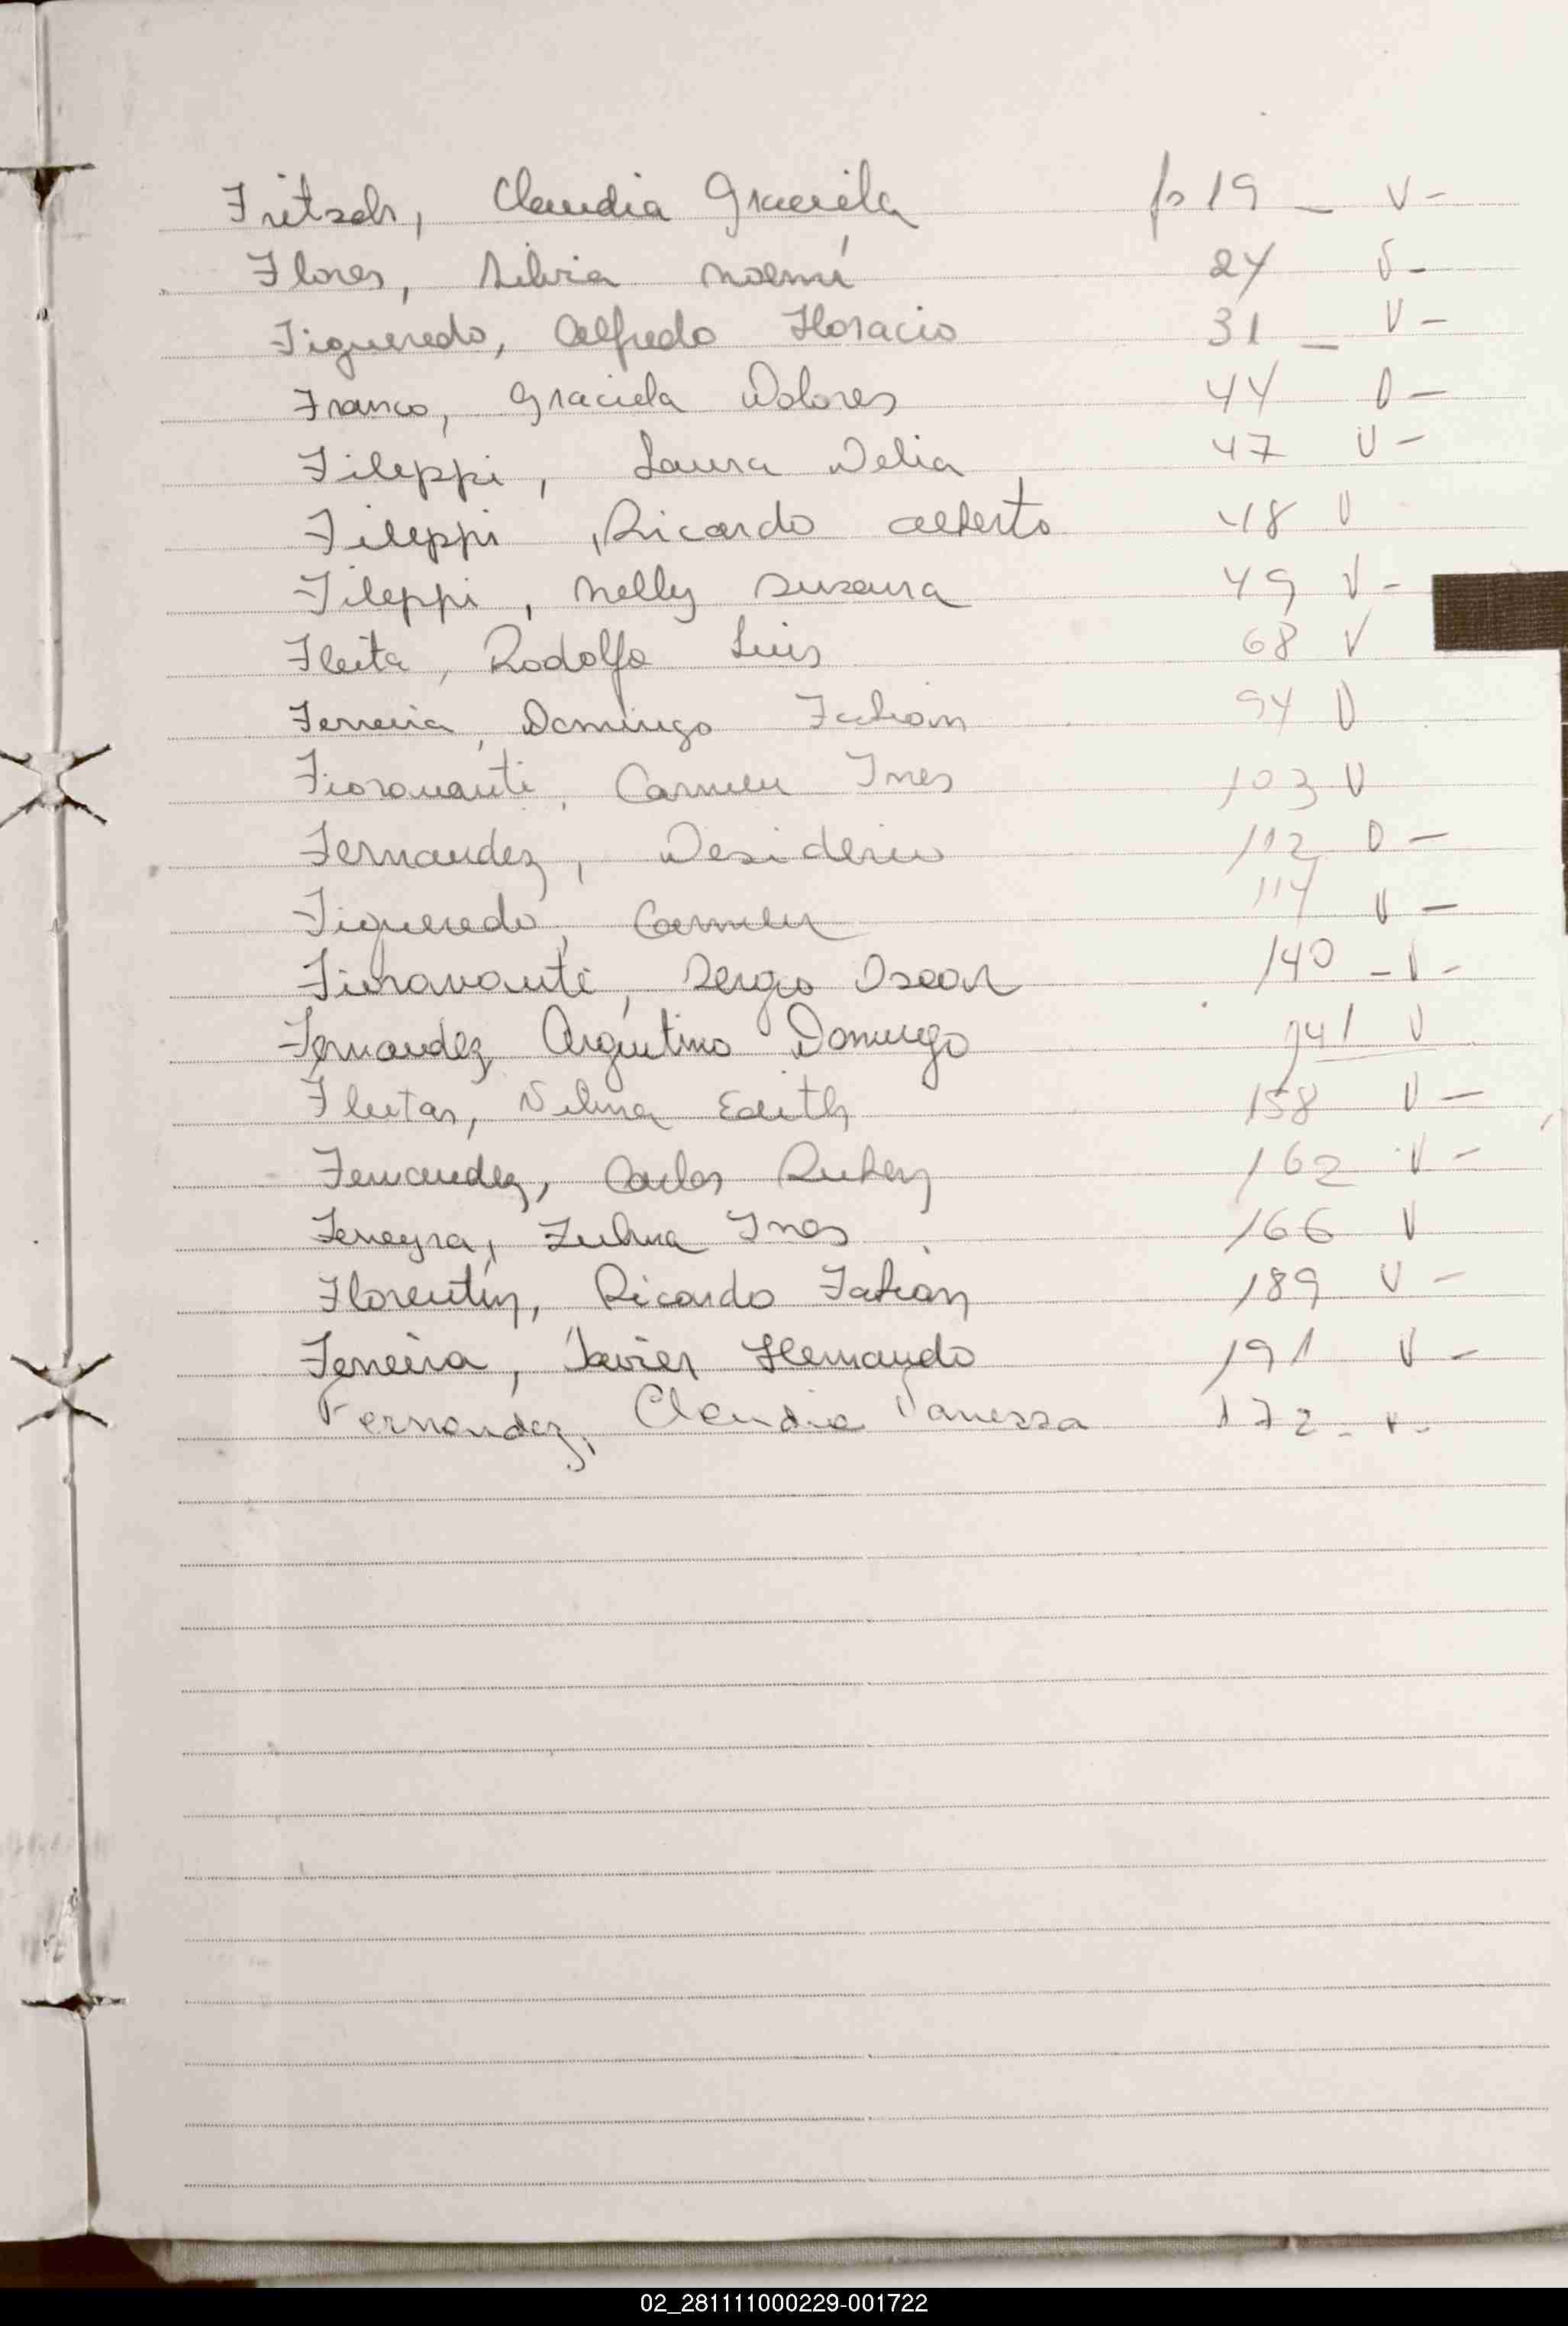 Fritzch, Claudia Graciela fs 19 - V -
Flores, Silvia Noemí 24 V -
Figueredo, Alfredo Horacio 31 - V -
Franco, Graciela Dolores 44 V -
Fileppi, Laura Delia 47 V -
Fileppi, Ricardo Alberto 48 V
Fileppi, Nelly Susana 49 V -
Fleita, Rodolfo Luis 68 V
Ferreira, Domingo Fabian 94 V
Fioravanti, Carmen Ines 103 V
Fernandez, Desiderio 112 V -
Figueredo, Carmen 114 V -
Fioravanti, Sergio Oscar 140 - V -
Fernandez, Argentino Domingo 141 V
Fleitas, Vilma Edith 158 V -
Fernandez, Carlos Ruben 162 V -
Ferreyra, Zulma Ines 166 V
Florentin, Ricardo Fabian 189 V -
Ferreira, Javier Hernando 191 V -
Fernandez, Claudia Vanessa 172 - V -
02_281111000229-001722